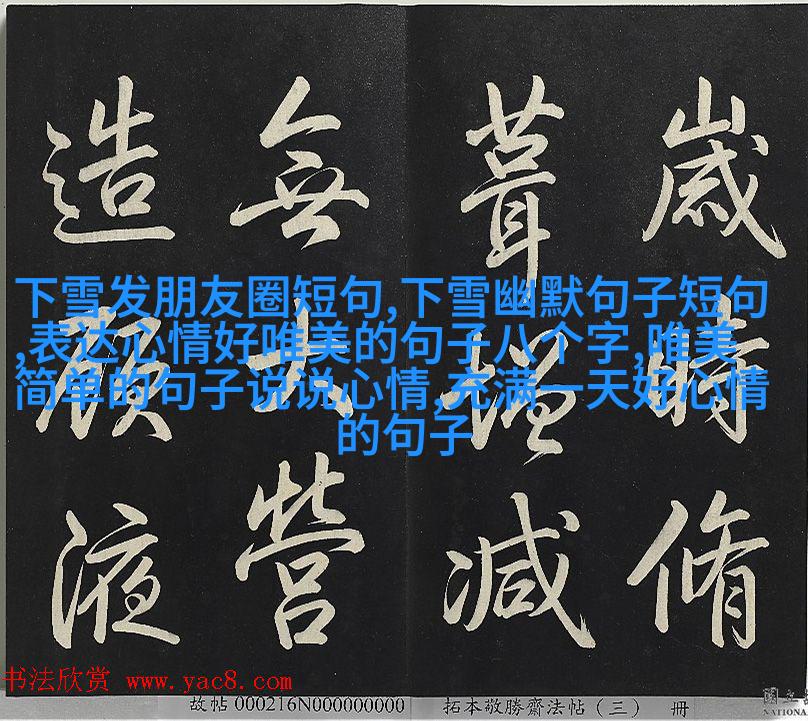 歲時脩
葺增減
無大營
造顧液
下雪发朋友圈短句,下雪幽默句子短句
,表达心情好唯美的句子八个字,唯美
简单的句子说说心情,充满一天好心情
的句子
书法欣赏 www.yac8.com
故帖000216N000000000 拓本敬勝齋法帖（三） 冊
國立
NATIONA